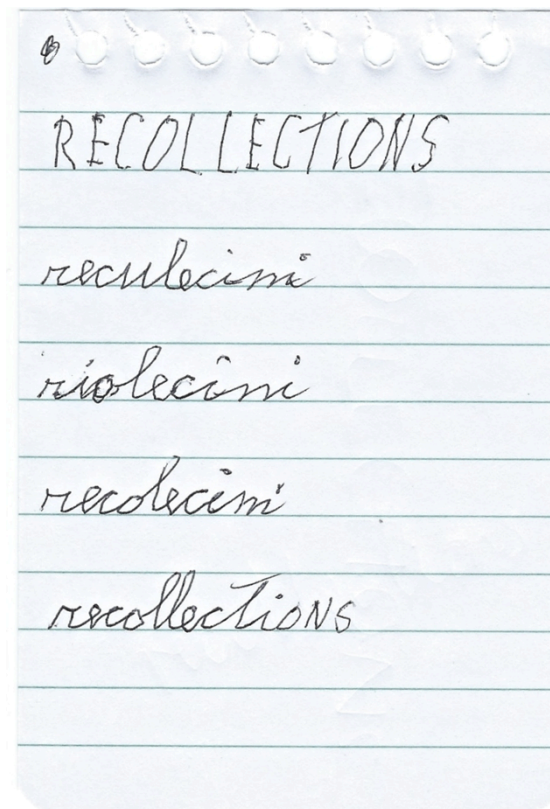 RECOLLECTIONS
reculecini
riolecini
recolecini
recollecTiONS